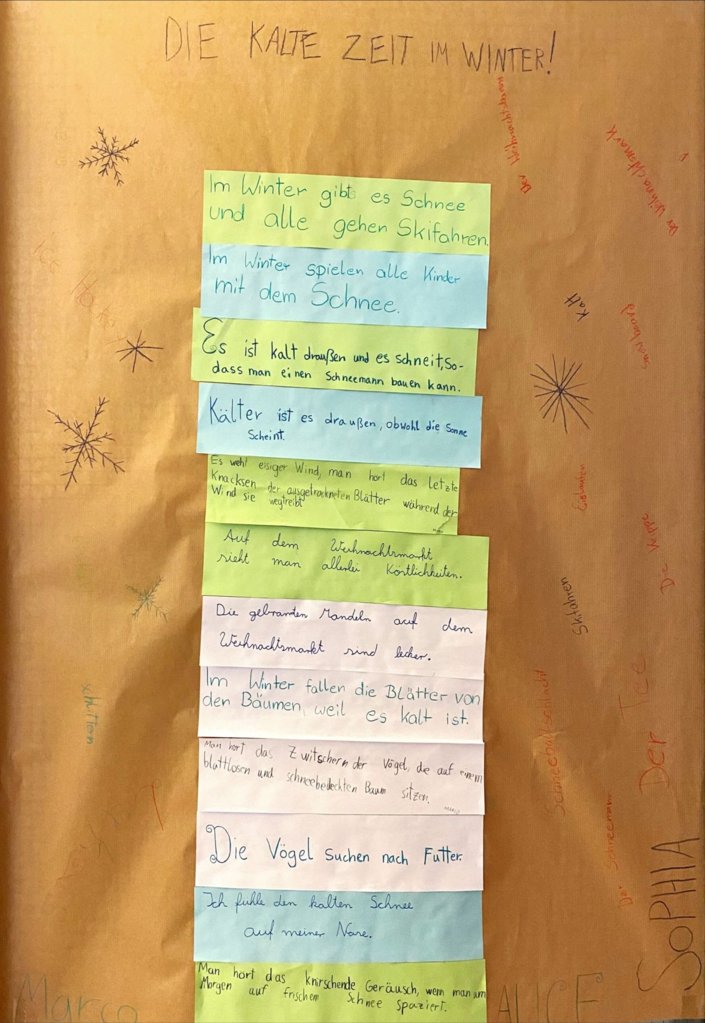 DIE KALTE ZEIT IM WINTER!
Der Weihnachtsmann
Der Weihnachtsmark
Im Winter gibt es Schnee
und alle gehen Skifahren.
Im Winter spielen alle Kinder
mit dem Schnee.
Kalt
Es ist kalt draußen und es schneit, so-
dass man einen Schneemann bauen kann.
Kälter ist es draußen, obwohl die Sonne
Scheint.
Es weht eisiger Wind, man hört das letzte
Knacksen der ausgetrockneten Blätter während der
Wind sie wegtreibt
Auf dem Weihnachtsmarkt
sieht man allerlei Köstlichkeiten.
Skifahren
Die gebranden Mandeln auf dem
Weihnachtsmarkt sind lecker.
Im Winter fallen die Blätter von
den Bäumen, weil es kalt ist.
schlittern
Schneeballschlacht
Der Tee
Man hort das Zwitschern der Vögel, die auf einem
blattlosen und schneebedeckten Baum sitzen.
Der Schneemann
Die Vögel suchen nach Futter.
Ich fühle den kalten Schnee
auf meiner Nase.
Man hort das knirschende Geräusch, wenn man am
Morgen auf frischem Schnee spaziert.
Marco
ALICE
SOPHIA